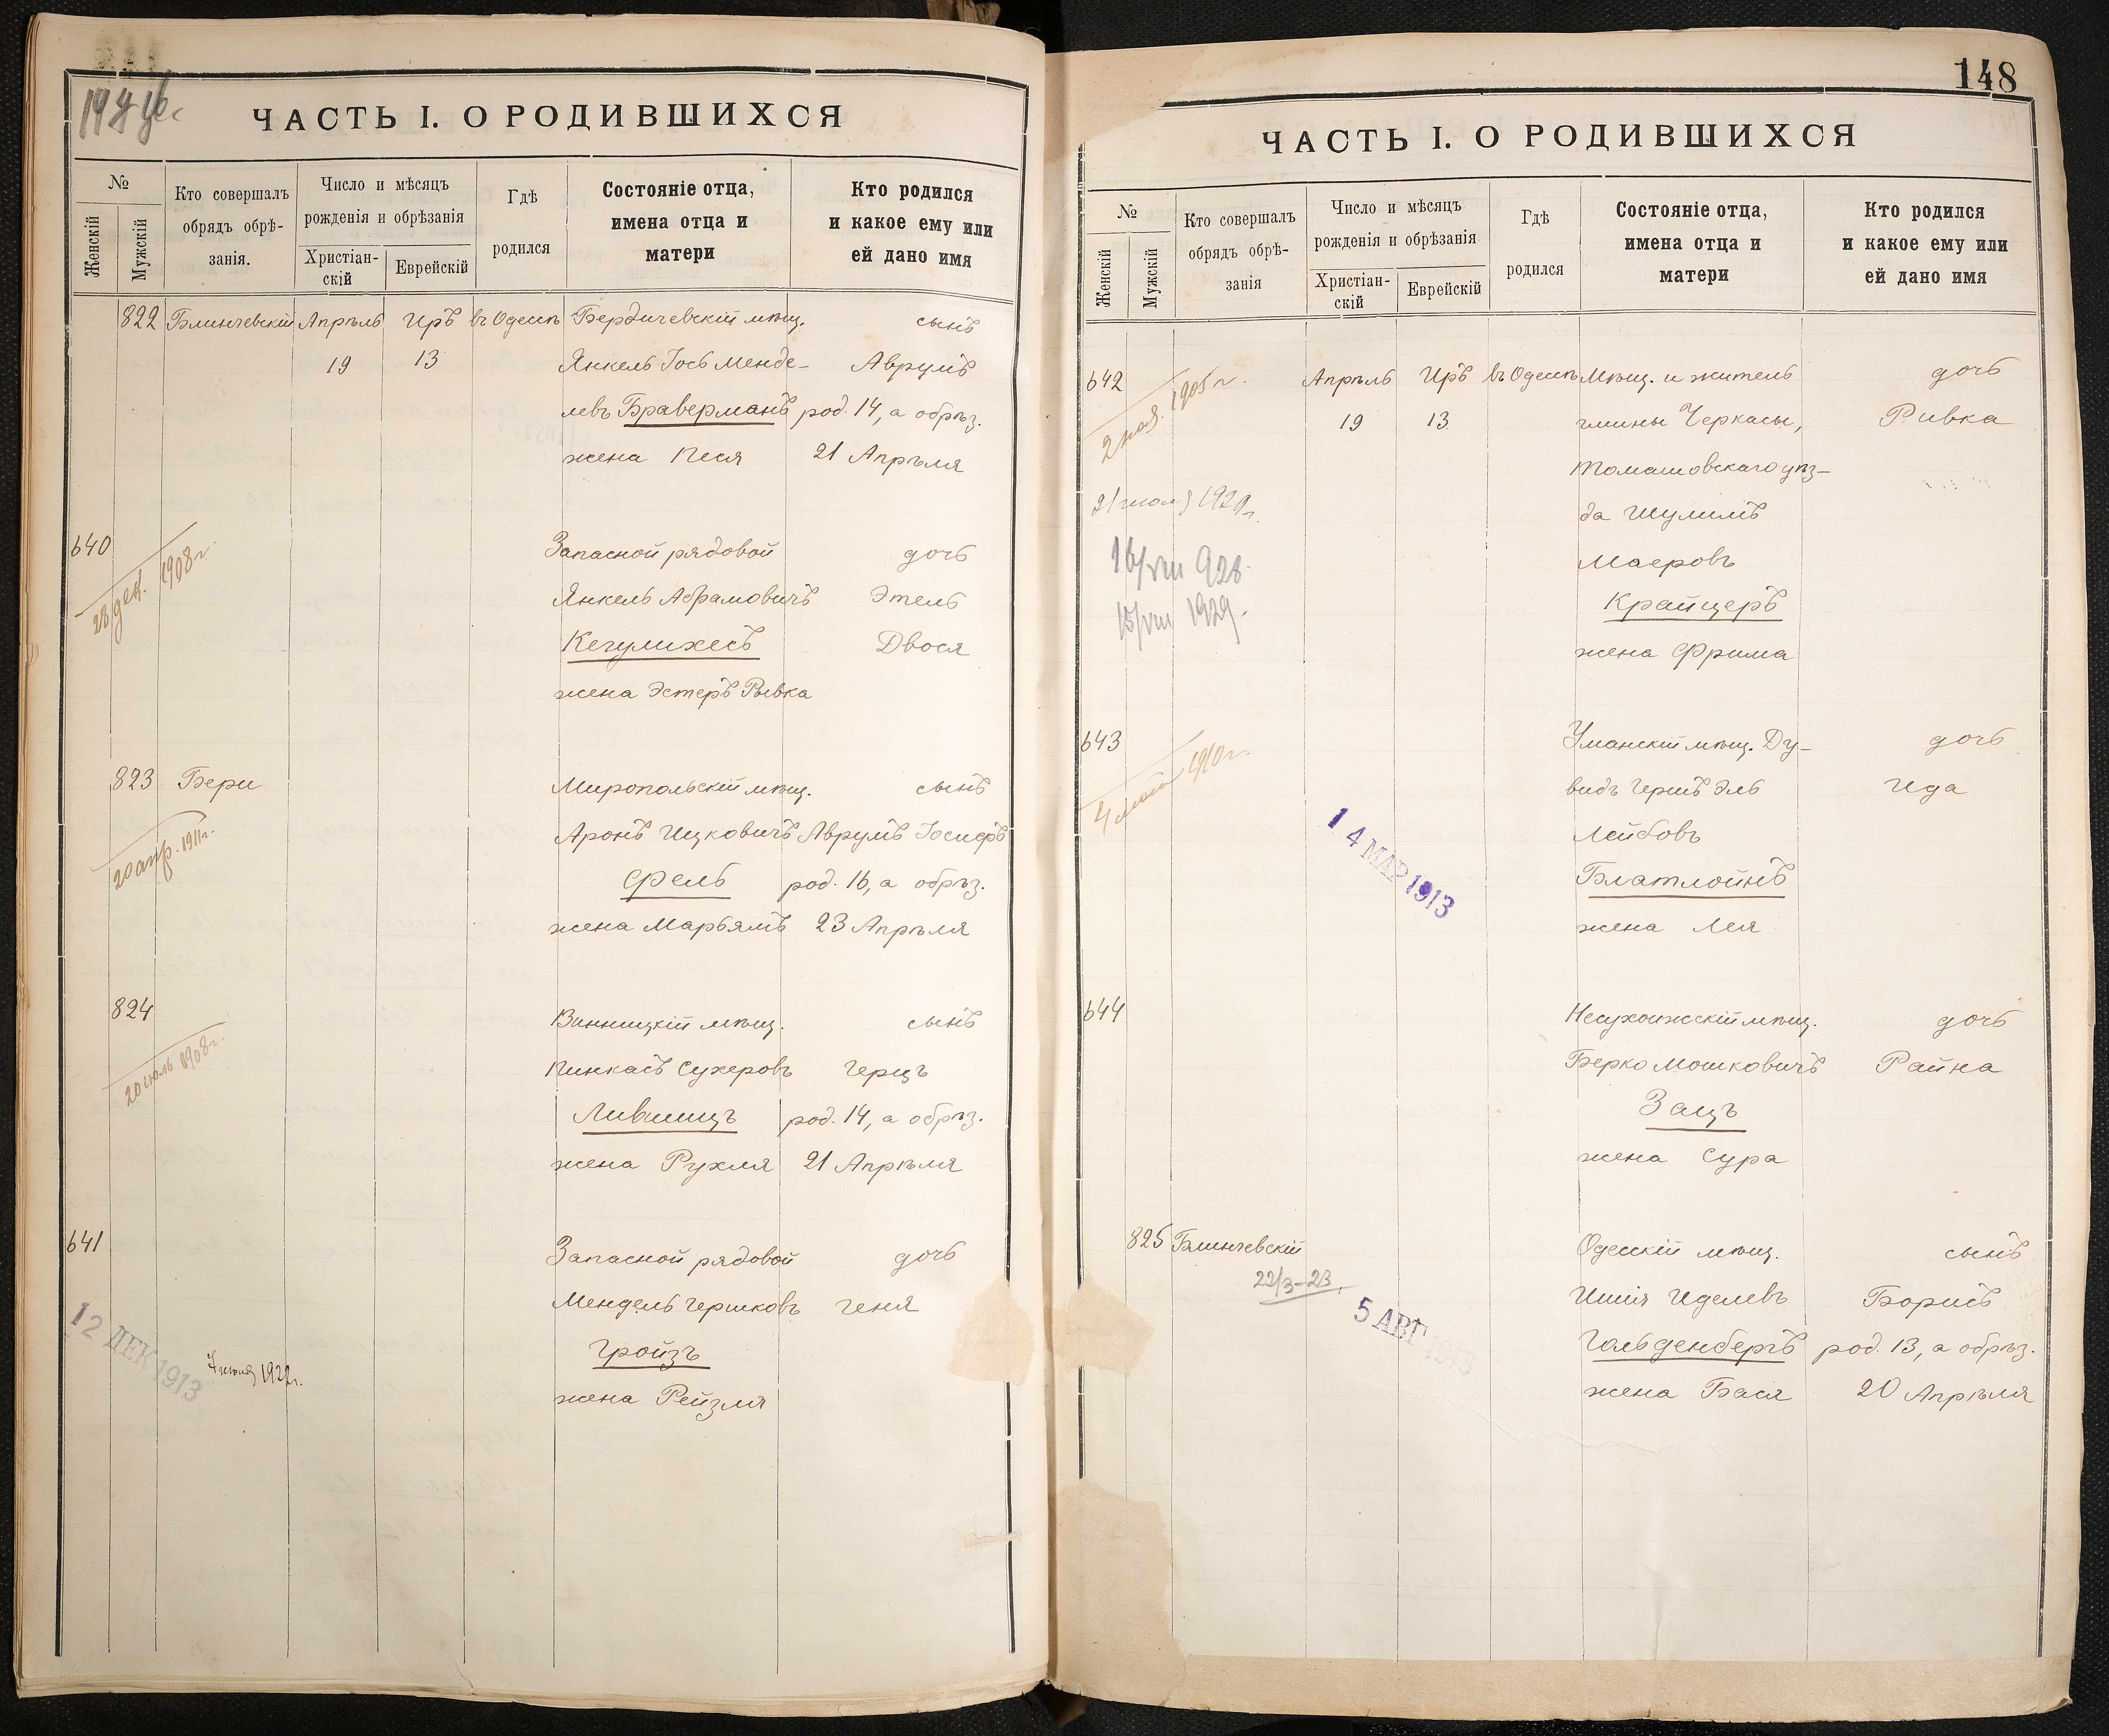 ЧАСТЬ I. О РОДИВШИХСЯ
№
Женскій
Мужскій
Кто совершалъ
обрядъ обрѣ-
занія.
Число и мѣсяцъ
рожденія и обрѣзанія
Христіан-
скій
Еврейскій
Гдѣ
родился
Состояніе отца,
имена отца и
матери
Кто родился
и какое ему или
ей дано имя
822 Блинчевскій Апрѣль Иръ въ Одессѣ Бердичевскій мѣщ. сынъ
19 13 Янкель Іось Менде- Аврумъ
левъ Браверманъ род. 14, а обрѣз.
жена Песя 21 Апрѣля
640 Запасной рядовой дочь
28 дек. 1908 г.
Янкель Абрамовичъ Этель
Кегулихесъ Двося
жена Эстеръ Рывка
823 Бери Миропольскій мѣщ. сынъ
20 апр. 1911 г.
Аронъ Ицковичъ Аврумъ Іосифъ
Фель род. 16, а обрѣз.
жена Марьямъ 23 Апрѣля
824 Винницкій мѣщ. сынъ
20 іюль 1908 г.
Пинкасъ Сухеровъ Герцъ
Лившицъ род. 14, а обрѣз.
жена Рухля 21 Апрѣля
641 Запасной рядовой дочь
Мендель Гершковъ Геня
Гройзъ
12 ДЕК 1913
1922 г.
жена Рейзля
148
ЧАСТЬ I. О РОДИВШИХСЯ
№
Женскій
Мужскій
Кто совершалъ
обрядъ обрѣ-
занія
Число и мѣсяцъ
рожденія и обрѣзанія
Христіан-
скій
Еврейскій
Гдѣ
родился
Состояніе отца,
имена отца и
матери
Кто родился
и какое ему или
ей дано имя
642 Апрѣль Иръ въ Одессѣ Мѣщ. и житель дочь
2 ноя. 1905 г.
19 13 гмины Черкасы, Ривка
Томашовскаго уѣз-
21 1929 г.
да Шулимъ
16/VIII 928
Маеровъ
15/VIII 1929
Крайцеръ
жена Фрима
643 Уманскій мѣщ. Ду- дочь
4 1910 г.
видъ Гершъ Эль Ида
14 МАР 1913
Лейбовъ
Блатлойнъ
жена Лея
644 Несухоижскій мѣщ. дочь
Берко Мошковичъ Райна
Защъ
жена Сура
825 Блинчевскій Одесскій мѣщ. сынъ
22/3-23
Ишія Иделевъ Борисъ
5 АВГ 1913
Гольденбергъ род. 13, а обрѣз.
жена Бася 20 Апрѣля